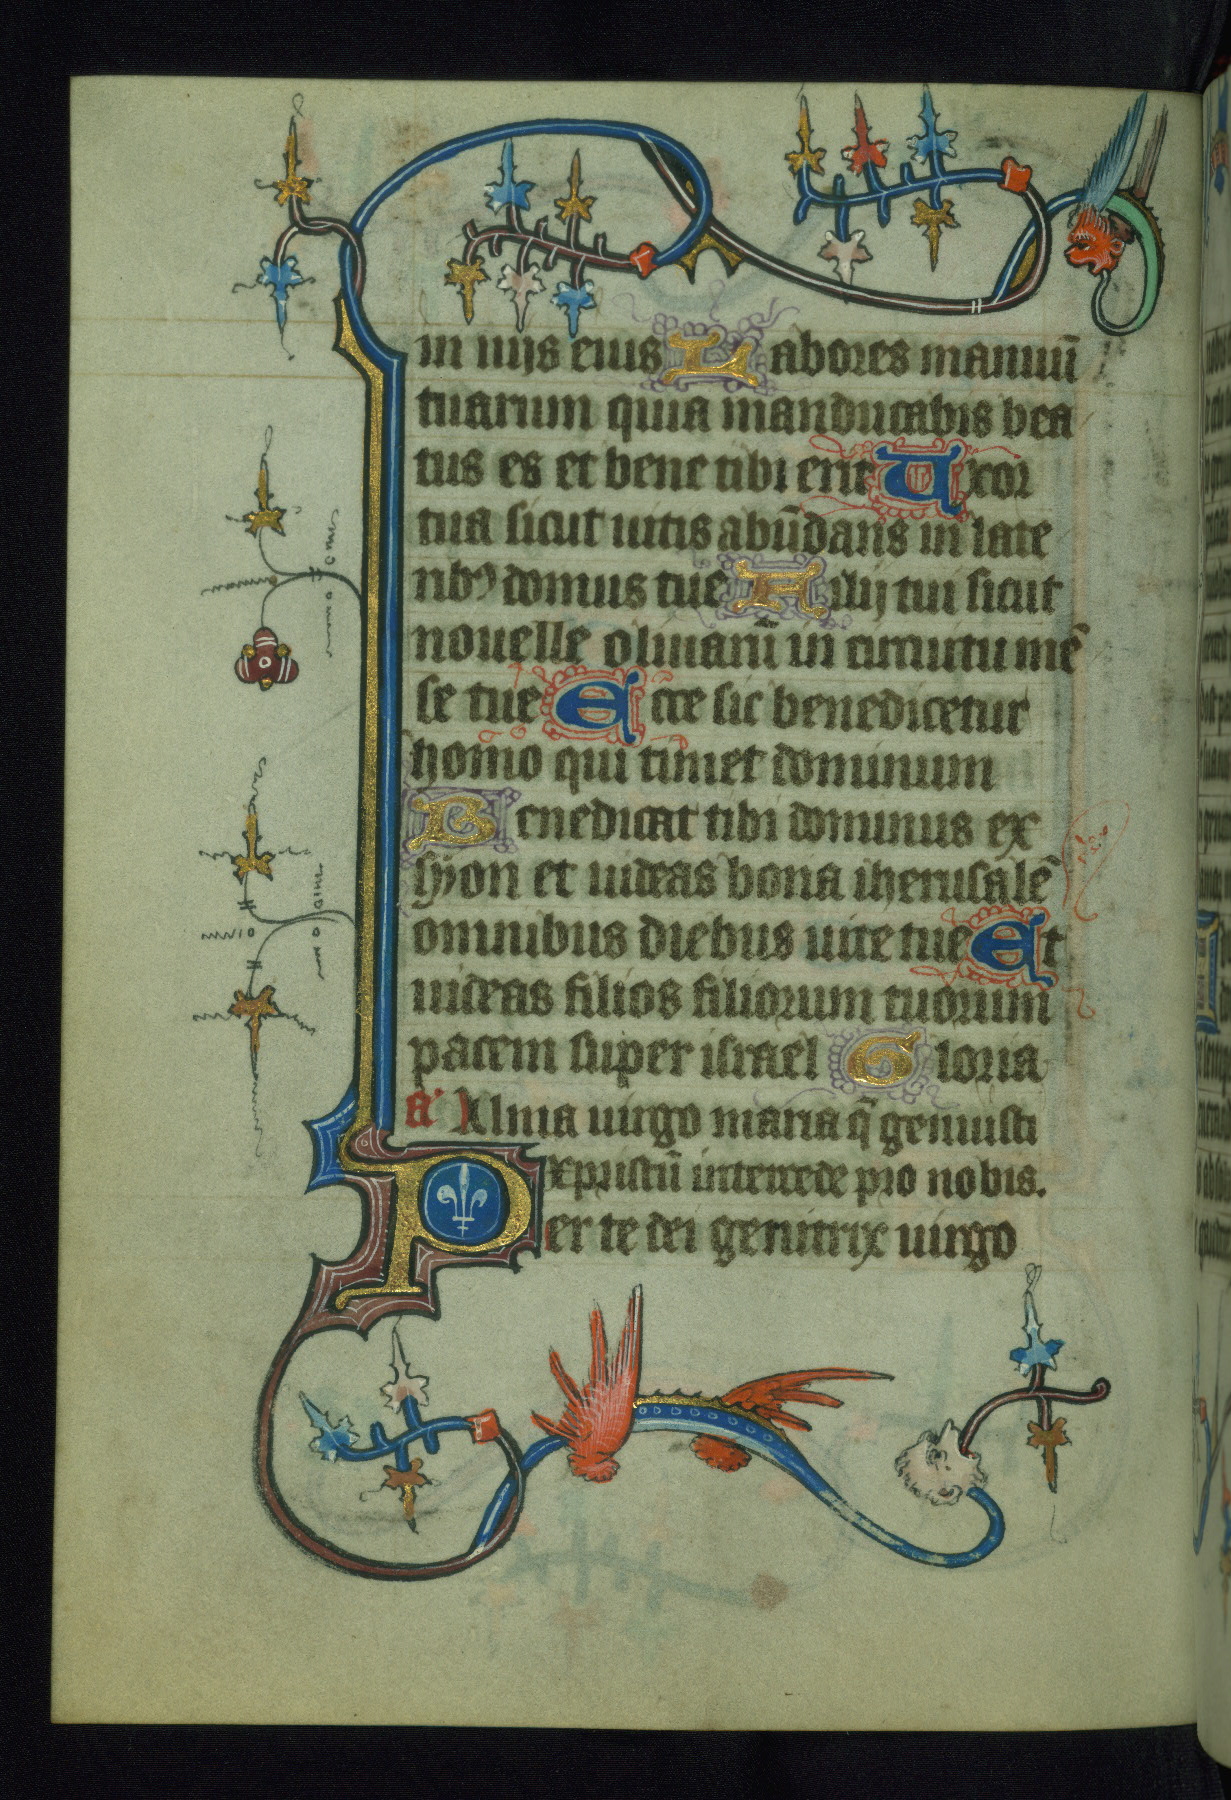 in uijs eius Labores manuū
tuarum quia manducabis bea
tus es et bene tibi erit Uxor
tua sicut uitis abūdans in late
ribꝰ domus tue Filij tui sicut
nouelle oliuarū in circuitu mē
se tue Ecce sic benedicetur
homo qui timet dominum
Benedicat tibi dominus ex
syon et uideas bona iherusalē
omnibus diebus uite tue Et
uideas filios filiorum tuorum
pacem super israel Gloria
a' Alma uirgo maria q̄ genuisti
xpristū intercede pro nobis.
Per te dei genitrix uirgo